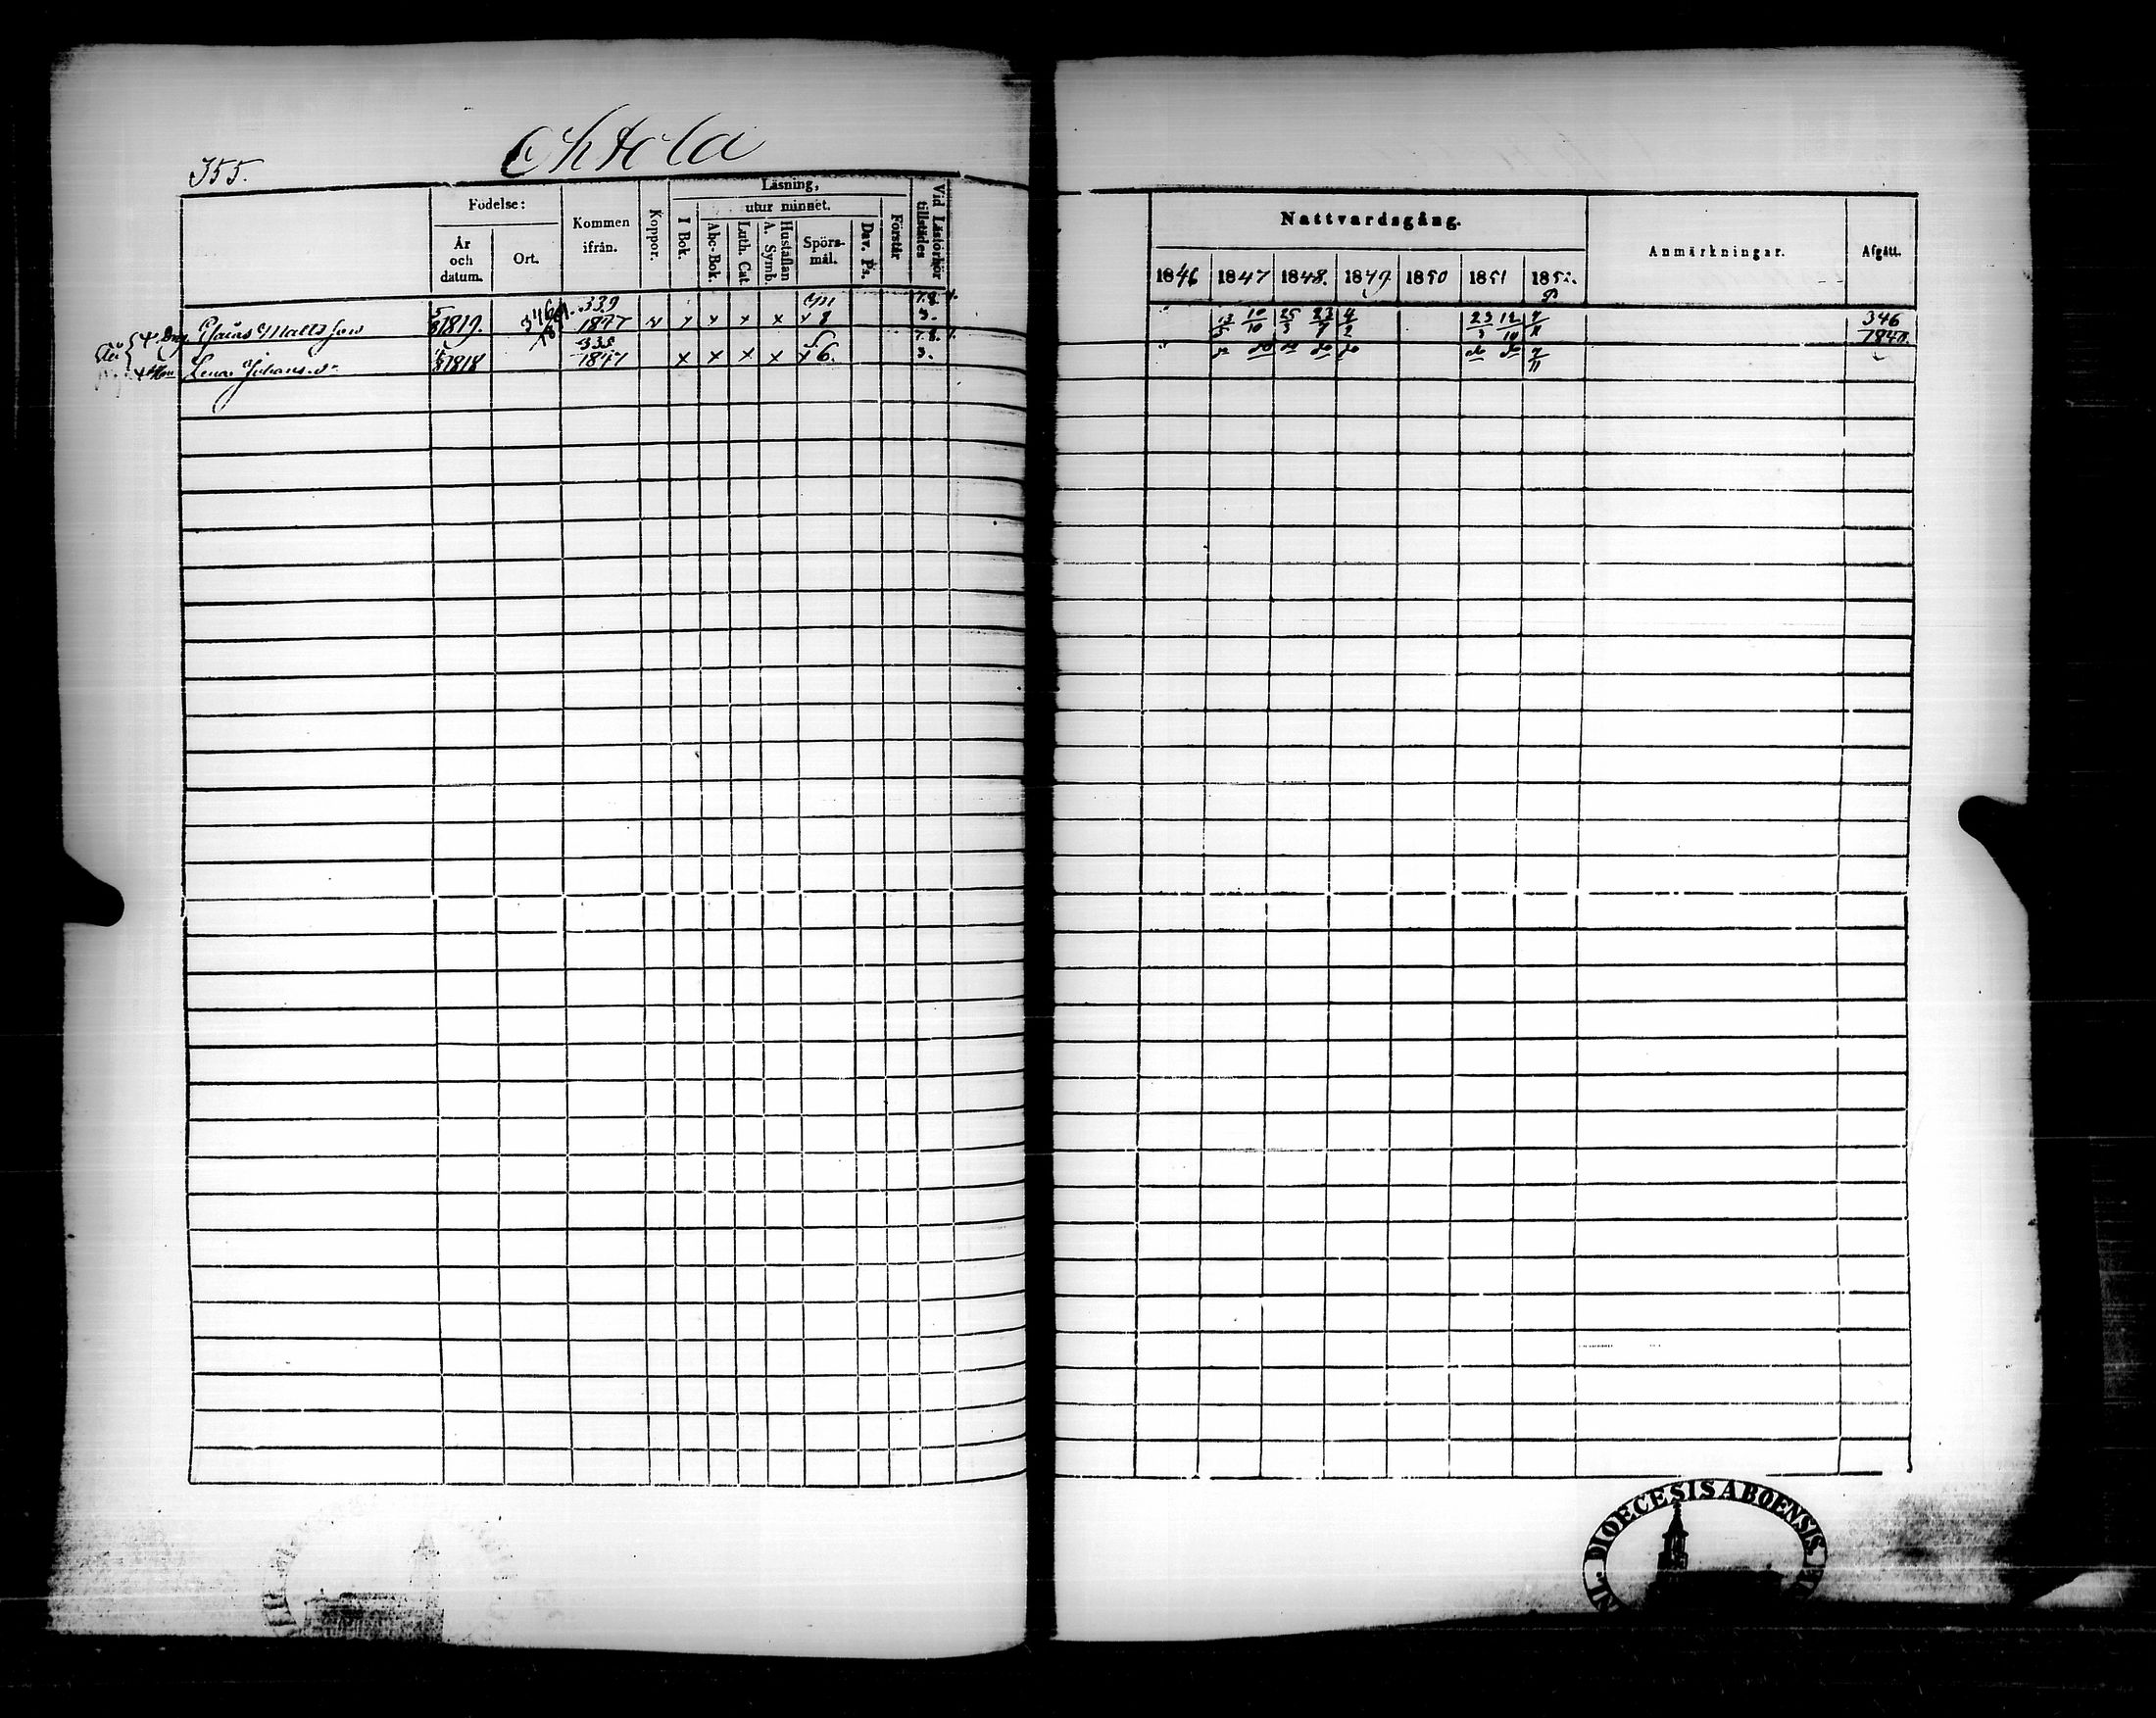 355.
Ohtola
Födelse:
År och datum.
Ort.
Kommen ifrån.
Koppor.
Läsning,
I Bok.
utur minnet.
Abc-Bok.
Luth. Cat
Hustaflan A. Symb.
Spörsmål.
Dav. Ps.
Förstår
Vid Läsförhör tillstädes
Nattvardsgång.
1846 1847 1848. 1849 1850 1851 1852.
Anmärkningar.
Afgått.
Drg. Matts son 1819. 339 1847 x x x x 8 7.8. 3. 13/5 10/10 25/3 4/2 23/3 12/10 346 1848
Lena Johans.dr 1818 335 1847 x x x x x 6. 7.8. 3. do do do do do do do 7/11
DIOECESIS ABOENSIS.